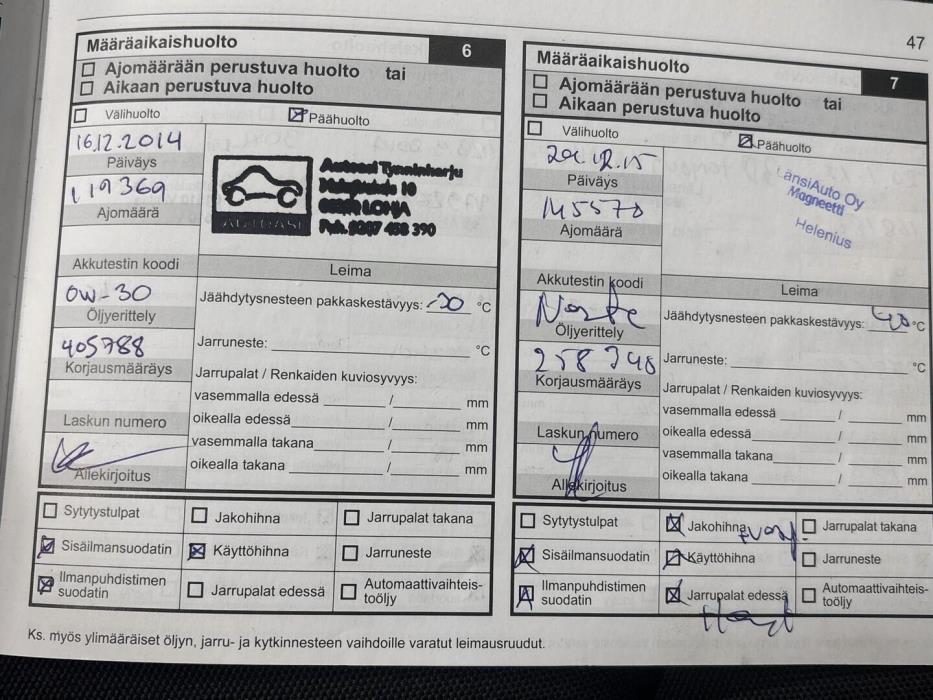 47
Määräaikaishuolto 6
Ajomäärään perustuva huolto tai
Aikaan perustuva huolto
Välihuolto Päähuolto
16.12.2014
Päiväys
119369
Ajomäärä
Autoasi Tynninharju
10
LOHJA
Puh. 0207 458 390
AUTOASI
Akkutestin koodi Leima
0W-30
Öljyerittely
Jäähdytysnesteen pakkaskestävyys: -30 °C
405788
Korjausmääräys
Jarruneste: °C
Jarrupalat / Renkaiden kuviosyvyys:
vasemmalla edessä / mm
Laskun numero
oikealla edessä / mm
vasemmalla takana / mm
Allekirjoitus
oikealla takana / mm
Sytytystulpat Jakohihna Jarrupalat takana
Sisäilmansuodatin Käyttöhihna Jarruneste
Ilmanpuhdistimen suodatin Jarrupalat edessä Automaattivaihteis-
toöljy
Määräaikaishuolto 7
Ajomäärään perustuva huolto tai
Aikaan perustuva huolto
Välihuolto Päähuolto
12.15
Päiväys
145570
Ajomäärä
änsiAuto Oy
Magneetti
Helenius
Akkutestin koodi Leima
Öljyerittely
Jäähdytysnesteen pakkaskestävyys: 40 °C
258748
Korjausmääräys
Jarruneste: °C
Jarrupalat / Renkaiden kuviosyvyys:
vasemmalla edessä / mm
Laskun numero
oikealla edessä / mm
vasemmalla takana / mm
Allekirjoitus
oikealla takana / mm
Sytytystulpat Jakohihna Jarrupalat takana
Sisäilmansuodatin Käyttöhihna Jarruneste
Ilmanpuhdistimen suodatin Jarrupalat edessä Automaattivaihteis-
toöljy
Ks. myös ylimääräiset öljyn, jarru- ja kytkinnesteen vaihdoille varatut leimausruudut.